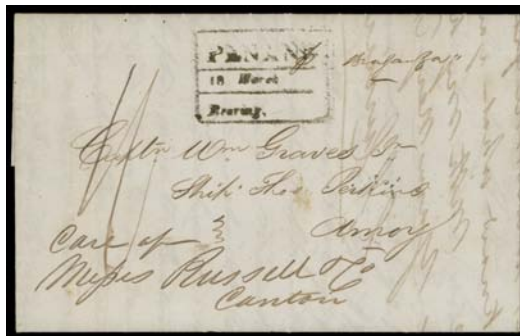 PENANG
18 March
Bearing.
Captn Wm Graves Jr
Ship Thos Perkins
Amoy
Care of
Messrs Russell & Co
Canton